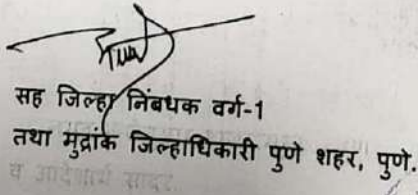 सह जिल्हा निबंधक वर्ग-1
तथा मुद्रांक जिल्हाधिकारी पुणे शहर, पुणे.